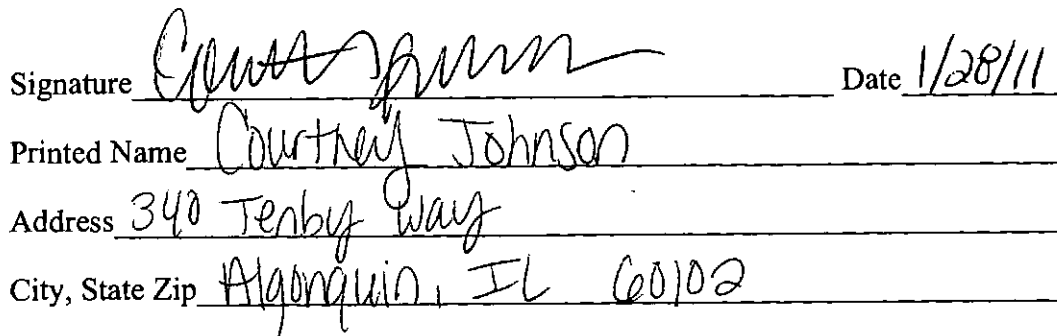 Signature Date 1/28/11
Printed Name Courtney Johnson
Address 340 Tenby Way
City, State Zip Algonquin, IL 60102